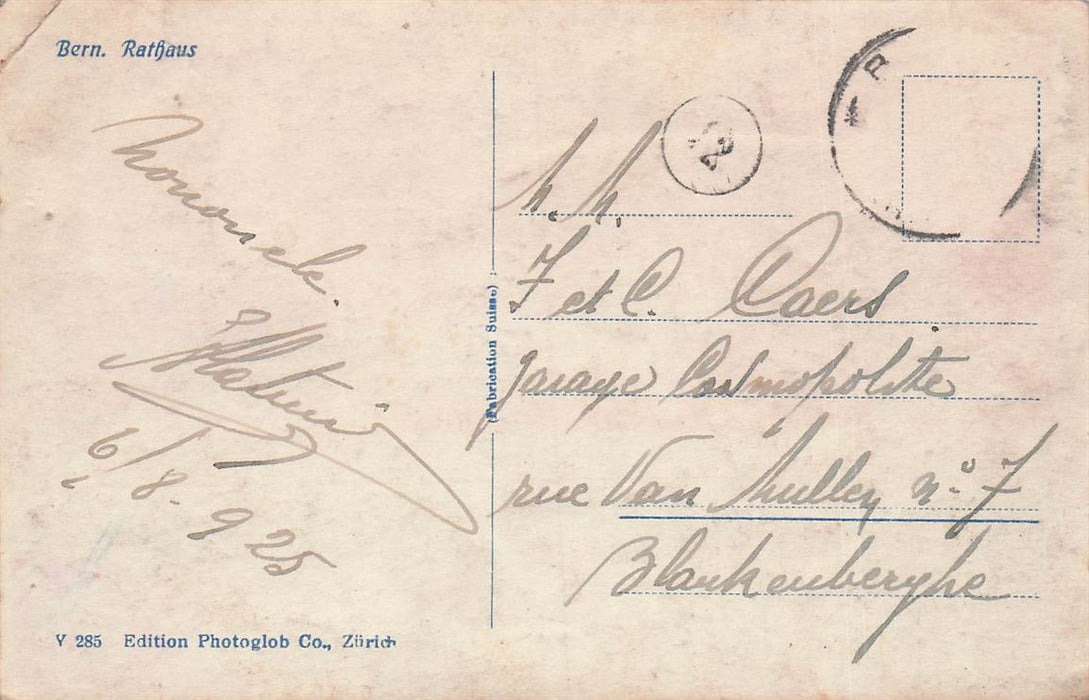 Bern. Rathaus
6/8-925
V 285 Edition Photoglob Co., Zürich
(Fabrication Suisse)
12
R
M. M.
F et C. Caers
garage Cosmopolite
rue Van Mullem n.° 7
Blankenberghe